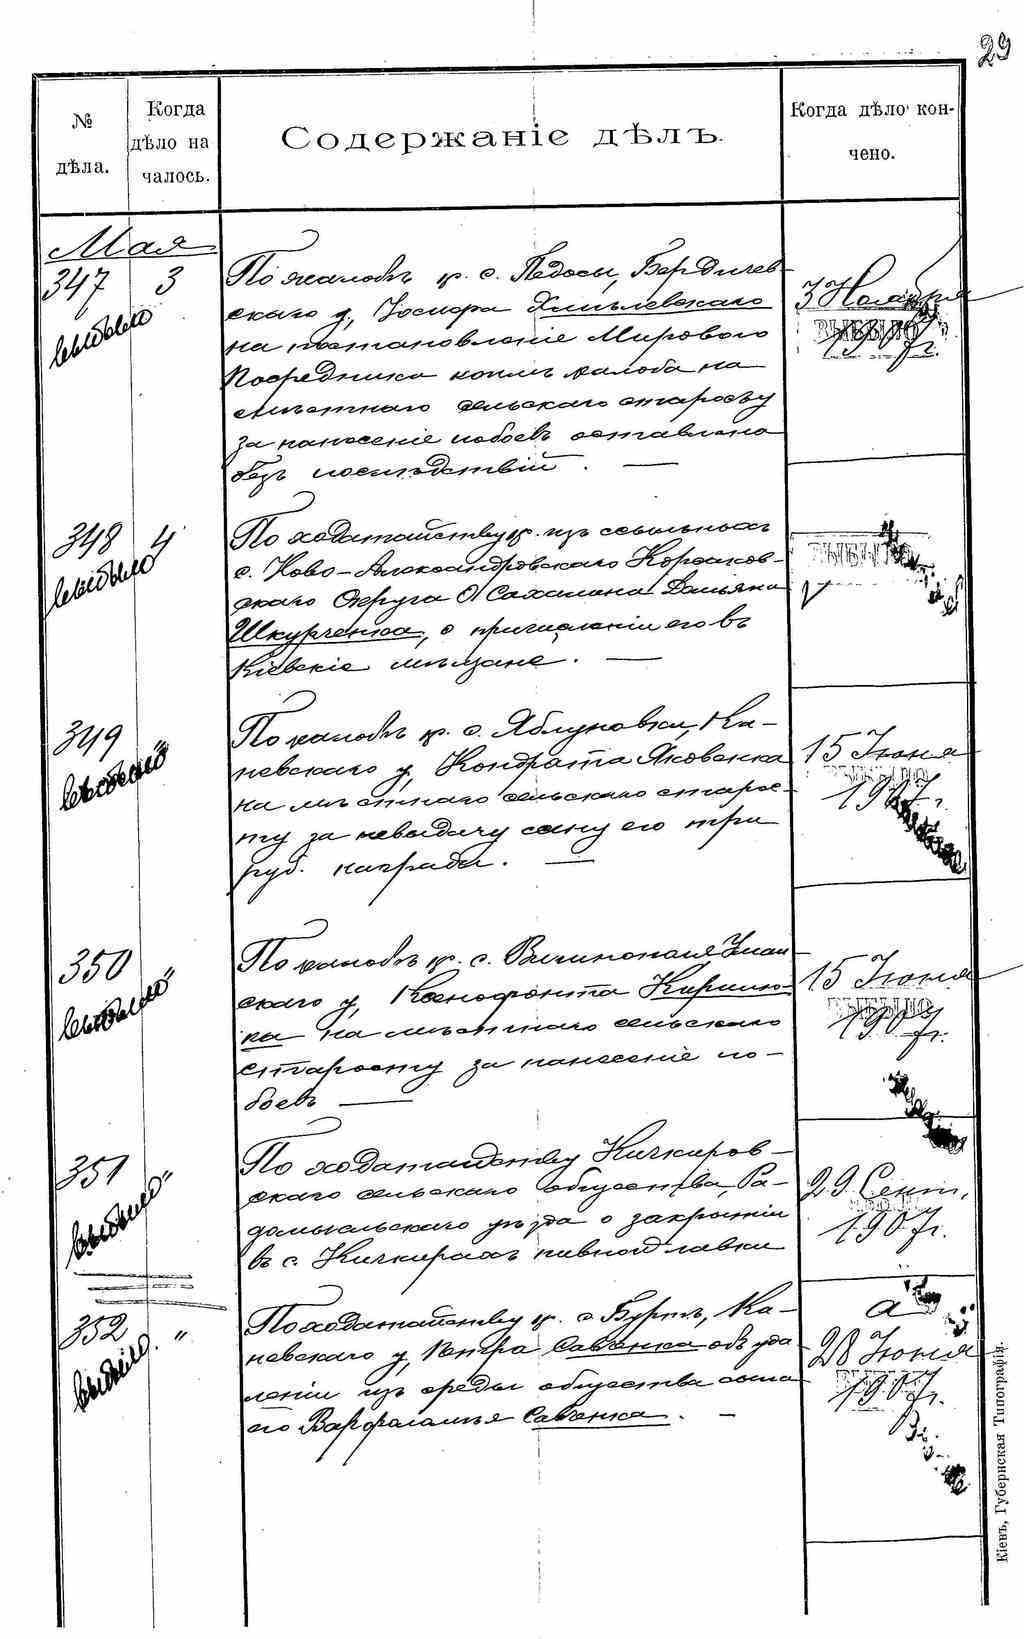 29
№ дѣла.
Когда дѣло на чалось.
Содержаніе дѣлъ.
Когда дѣло кон- чено.
Мая
347 3
выбыло
По жалобѣ кр. с. Педосы, Бердичев-
скаго у, Іосифа Хмѣлевскаго
на постановленіе Мирового
Посредника коимъ жалоба на
мѣстнаго сельскаго старосту
за нанесеніе побоевъ оставлена
безъ послѣдствій. —
3 Ноября
ВЫБЫЛО
1907 г.
348 4
выбыло
По ходатайству кр. изъ ссыльныхъ
с. Ново-Александровскаго Корсаков-
скаго Округа О Сахалина Демьяна
Шкурченка, о причисленіи его въ
Кіевскіе мѣщане. —
ВЫБЫЛО
349 "
выбыло
По жалобѣ кр. с. Яблуновки, Ка-
невскаго у, Кондрата Яковенка
на мѣстнаго сельскаго старос-
ту за невыдачу сыну его три
руб. награды. —
15 Іюня
1907 г.
350 "
выбыло
По жалобѣ кр. с. Уман-
скаго у, Ксенофонта Кирилю-
ка на мѣстнаго сельскаго
старосту за нанесеніе по-
боевъ —
15 Іюня
ВЫБЫЛО
1907 г.
351 "
выбыло
По ходатайству Кичкиров-
скаго сельскаго общества, Ра-
домысльскаго уѣзда о закрытіи
въ с. Кичкирахъ пивной лавки
29 Сент.
1907 г.
352 "
выбыло.
По ходатайству кр. с Буртъ, Ка-
невскаго у, Петра Савченка объ уда
леніи изъ среды общества сына
его Варфоломея Савченка. —
28 Іюня
1907 г.
Кіевъ, Губернская Типографія.